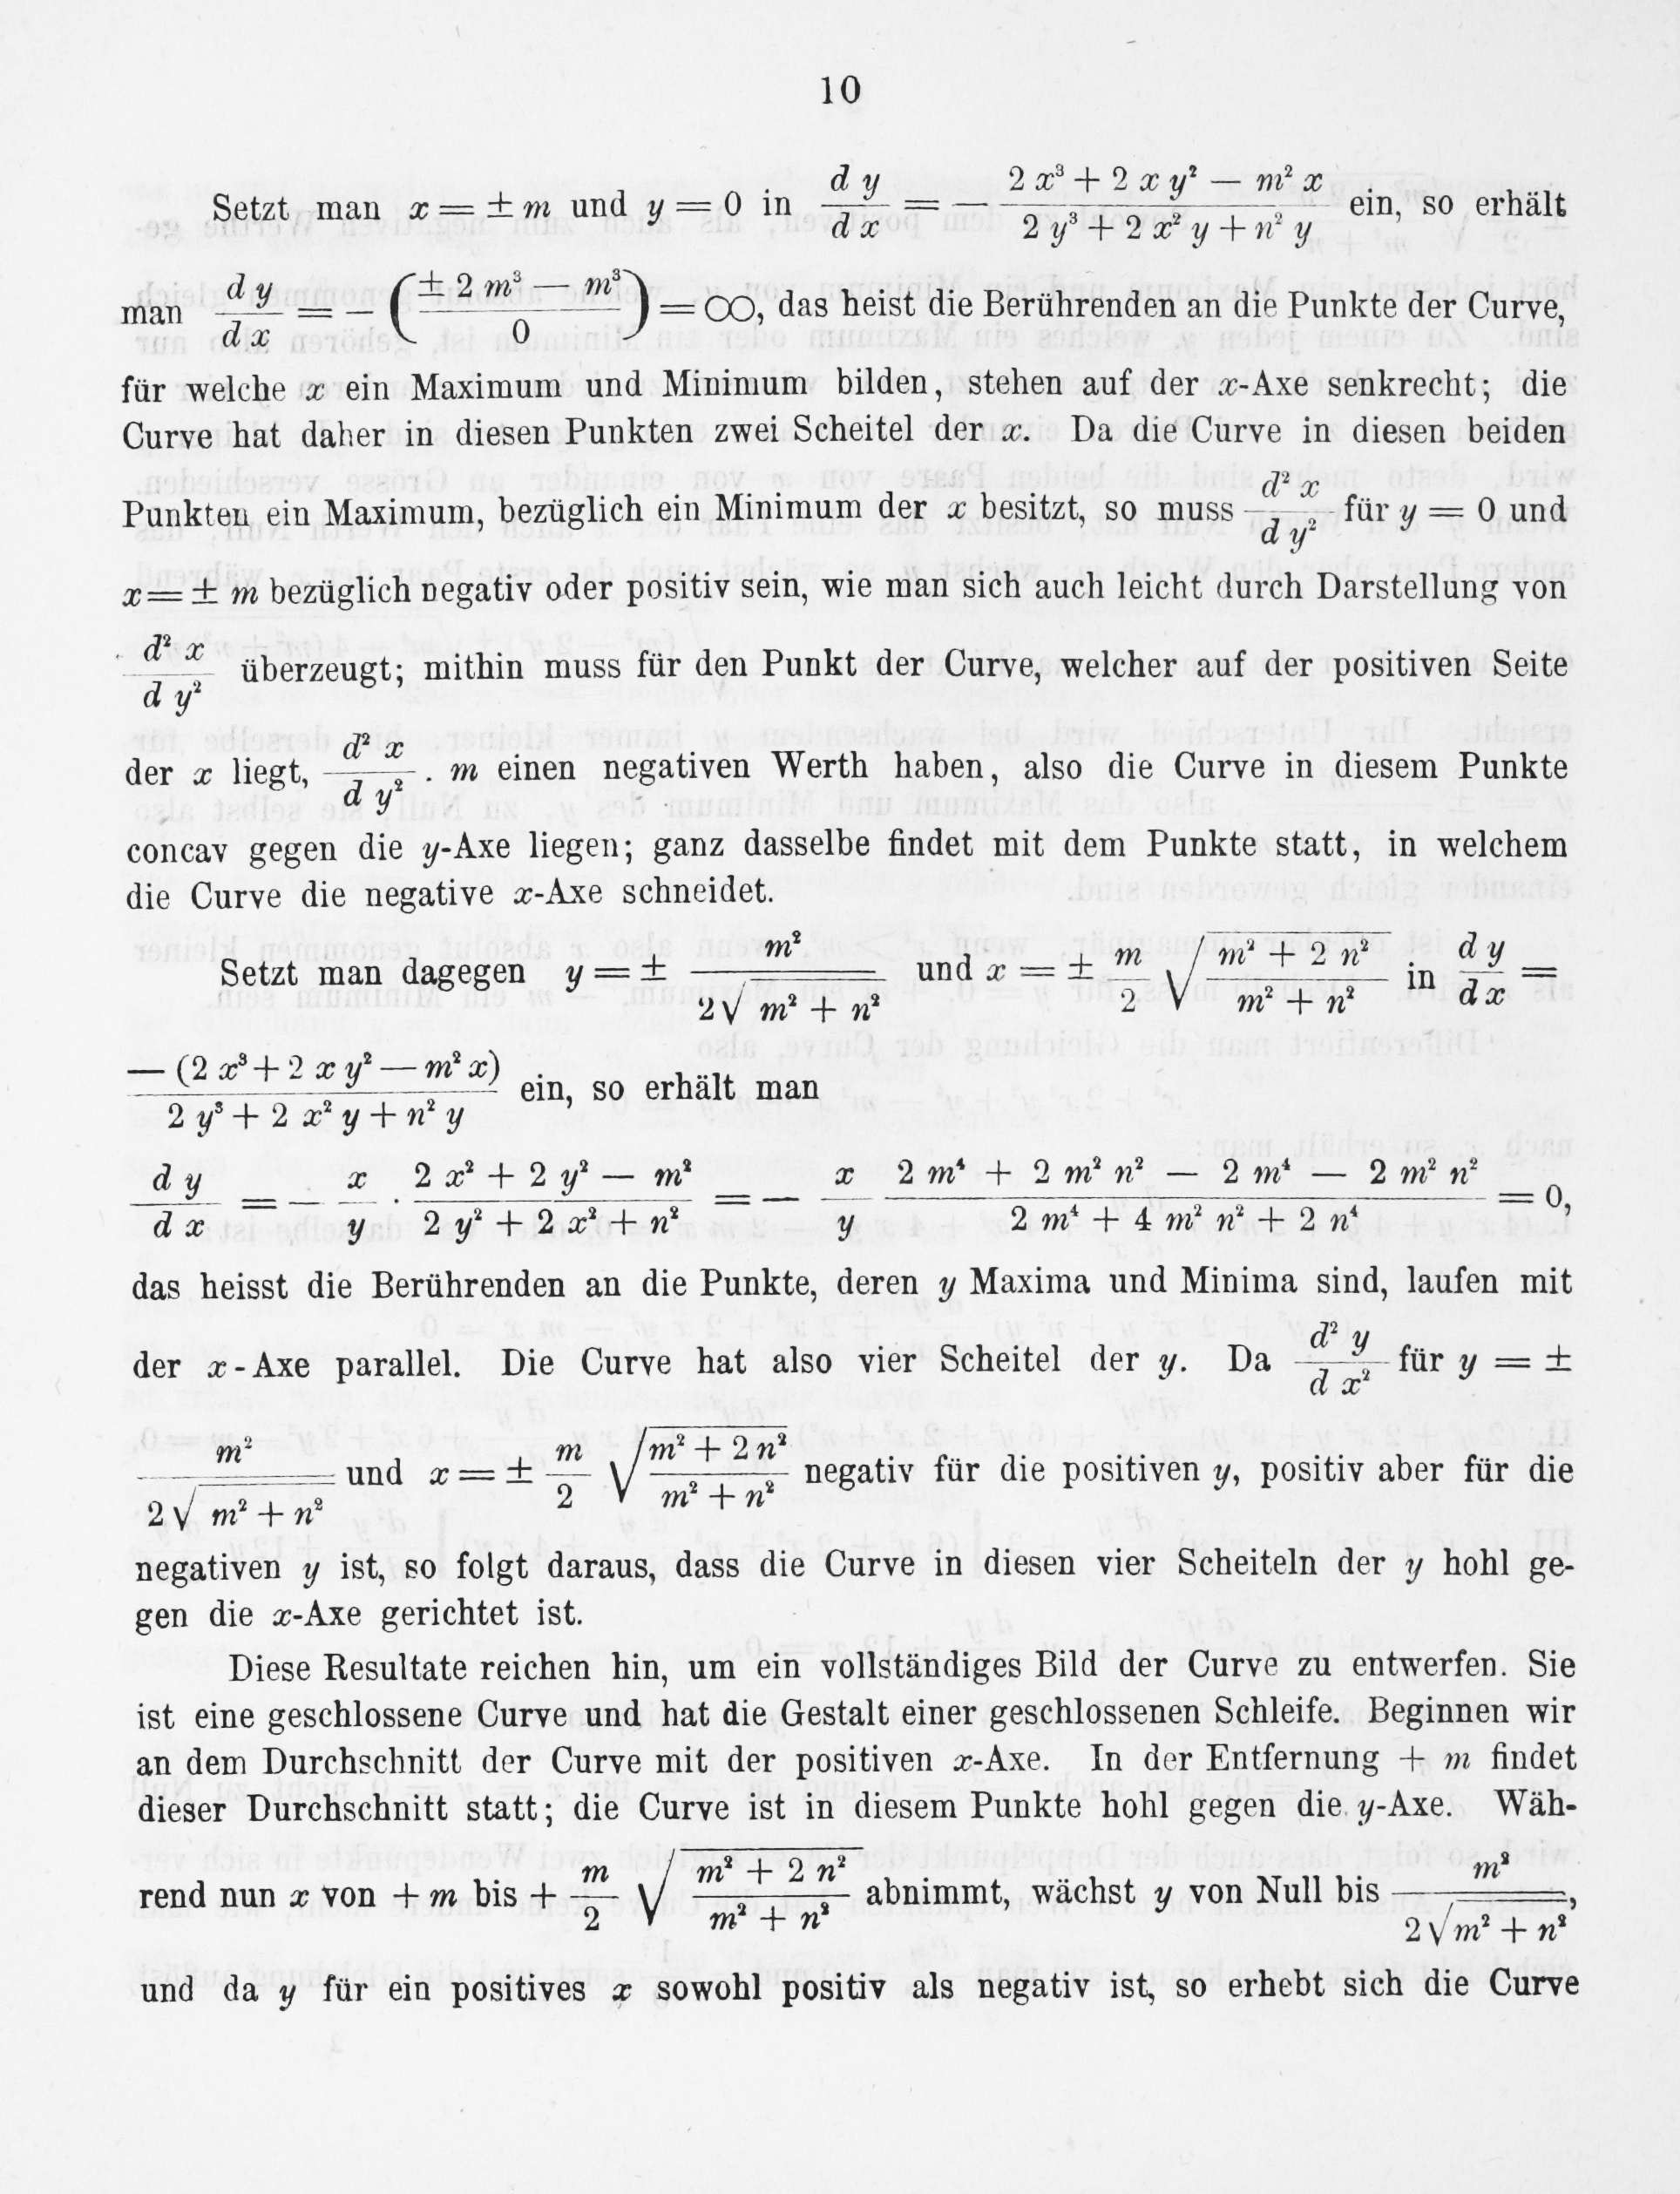 10
Setzt man $x = \pm m$ und $y = 0$ in $\frac{d y}{d x} = - \frac{2 x^3 + 2 x y^2 - m^2 x}{2 y^3 + 2 x^2 y + n^2 y}$ ein, so erhält
man $\frac{d y}{d x} = - \left( \frac{\pm 2 m^3 - m^3}{0} \right) = \infty$, das heist die Berührenden an die Punkte der Curve,
für welche $x$ ein Maximum und Minimum bilden, stehen auf der $x$-Axe senkrecht; die
Curve hat daher in diesen Punkten zwei Scheitel der $x$. Da die Curve in diesen beiden
Punkten ein Maximum, bezüglich ein Minimum der $x$ besitzt, so muss $\frac{d^2 x}{d y^2}$ für $y = 0$ und
$x = \pm m$ bezüglich negativ oder positiv sein, wie man sich auch leicht durch Darstellung von
$\frac{d^2 x}{d y^2}$ überzeugt; mithin muss für den Punkt der Curve, welcher auf der positiven Seite
der $x$ liegt, $\frac{d^2 x}{d y^2} . m$ einen negativen Werth haben, also die Curve in diesem Punkte
concav gegen die $y$-Axe liegen; ganz dasselbe findet mit dem Punkte statt, in welchem
die Curve die negative $x$-Axe schneidet.
Setzt man dagegen $y = \pm \frac{m^2}{2 \sqrt{m^2 + n^2}}$ und $x = \pm \frac{m}{2} \sqrt{\frac{m^2 + 2 n^2}{m^2 + n^2}}$ in $\frac{d y}{d x} =$
$\frac{- (2 x^3 + 2 x y^2 - m^2 x)}{2 y^3 + 2 x^2 y + n^2 y}$ ein, so erhält man
$\frac{d y}{d x} = - \frac{x}{y} \cdot \frac{2 x^2 + 2 y^2 - m^2}{2 y^2 + 2 x^2 + n^2} = - \frac{x}{y} \frac{2 m^4 + 2 m^2 n^2 - 2 m^4 - 2 m^2 n^2}{2 m^4 + 4 m^2 n^2 + 2 n^4} = 0,$
das heisst die Berührenden an die Punkte, deren $y$ Maxima und Minima sind, laufen mit
der $x$-Axe parallel. Die Curve hat also vier Scheitel der $y$. Da $\frac{d^2 y}{d x^2}$ für $y = \pm$
$\frac{m^2}{2 \sqrt{m^2 + n^2}}$ und $x = \pm \frac{m}{2} \sqrt{\frac{m^2 + 2 n^2}{m^2 + n^2}}$ negativ für die positiven $y$, positiv aber für die
negativen $y$ ist, so folgt daraus, dass die Curve in diesen vier Scheiteln der $y$ hohl ge-
gen die $x$-Axe gerichtet ist.
Diese Resultate reichen hin, um ein vollständiges Bild der Curve zu entwerfen. Sie
ist eine geschlossene Curve und hat die Gestalt einer geschlossenen Schleife. Beginnen wir
an dem Durchschnitt der Curve mit der positiven $x$-Axe. In der Entfernung $+ m$ findet
dieser Durchschnitt statt; die Curve ist in diesem Punkte hohl gegen die $y$-Axe. Wäh-
rend nun $x$ von $+ m$ bis $+ \frac{m}{2} \sqrt{\frac{m^2 + 2 n^2}{m^2 + n^2}}$ abnimmt, wächst $y$ von Null bis $\frac{m^2}{2 \sqrt{m^2 + n^2}}$,
und da $y$ für ein positives $x$ sowohl positiv als negativ ist, so erhebt sich die Curve